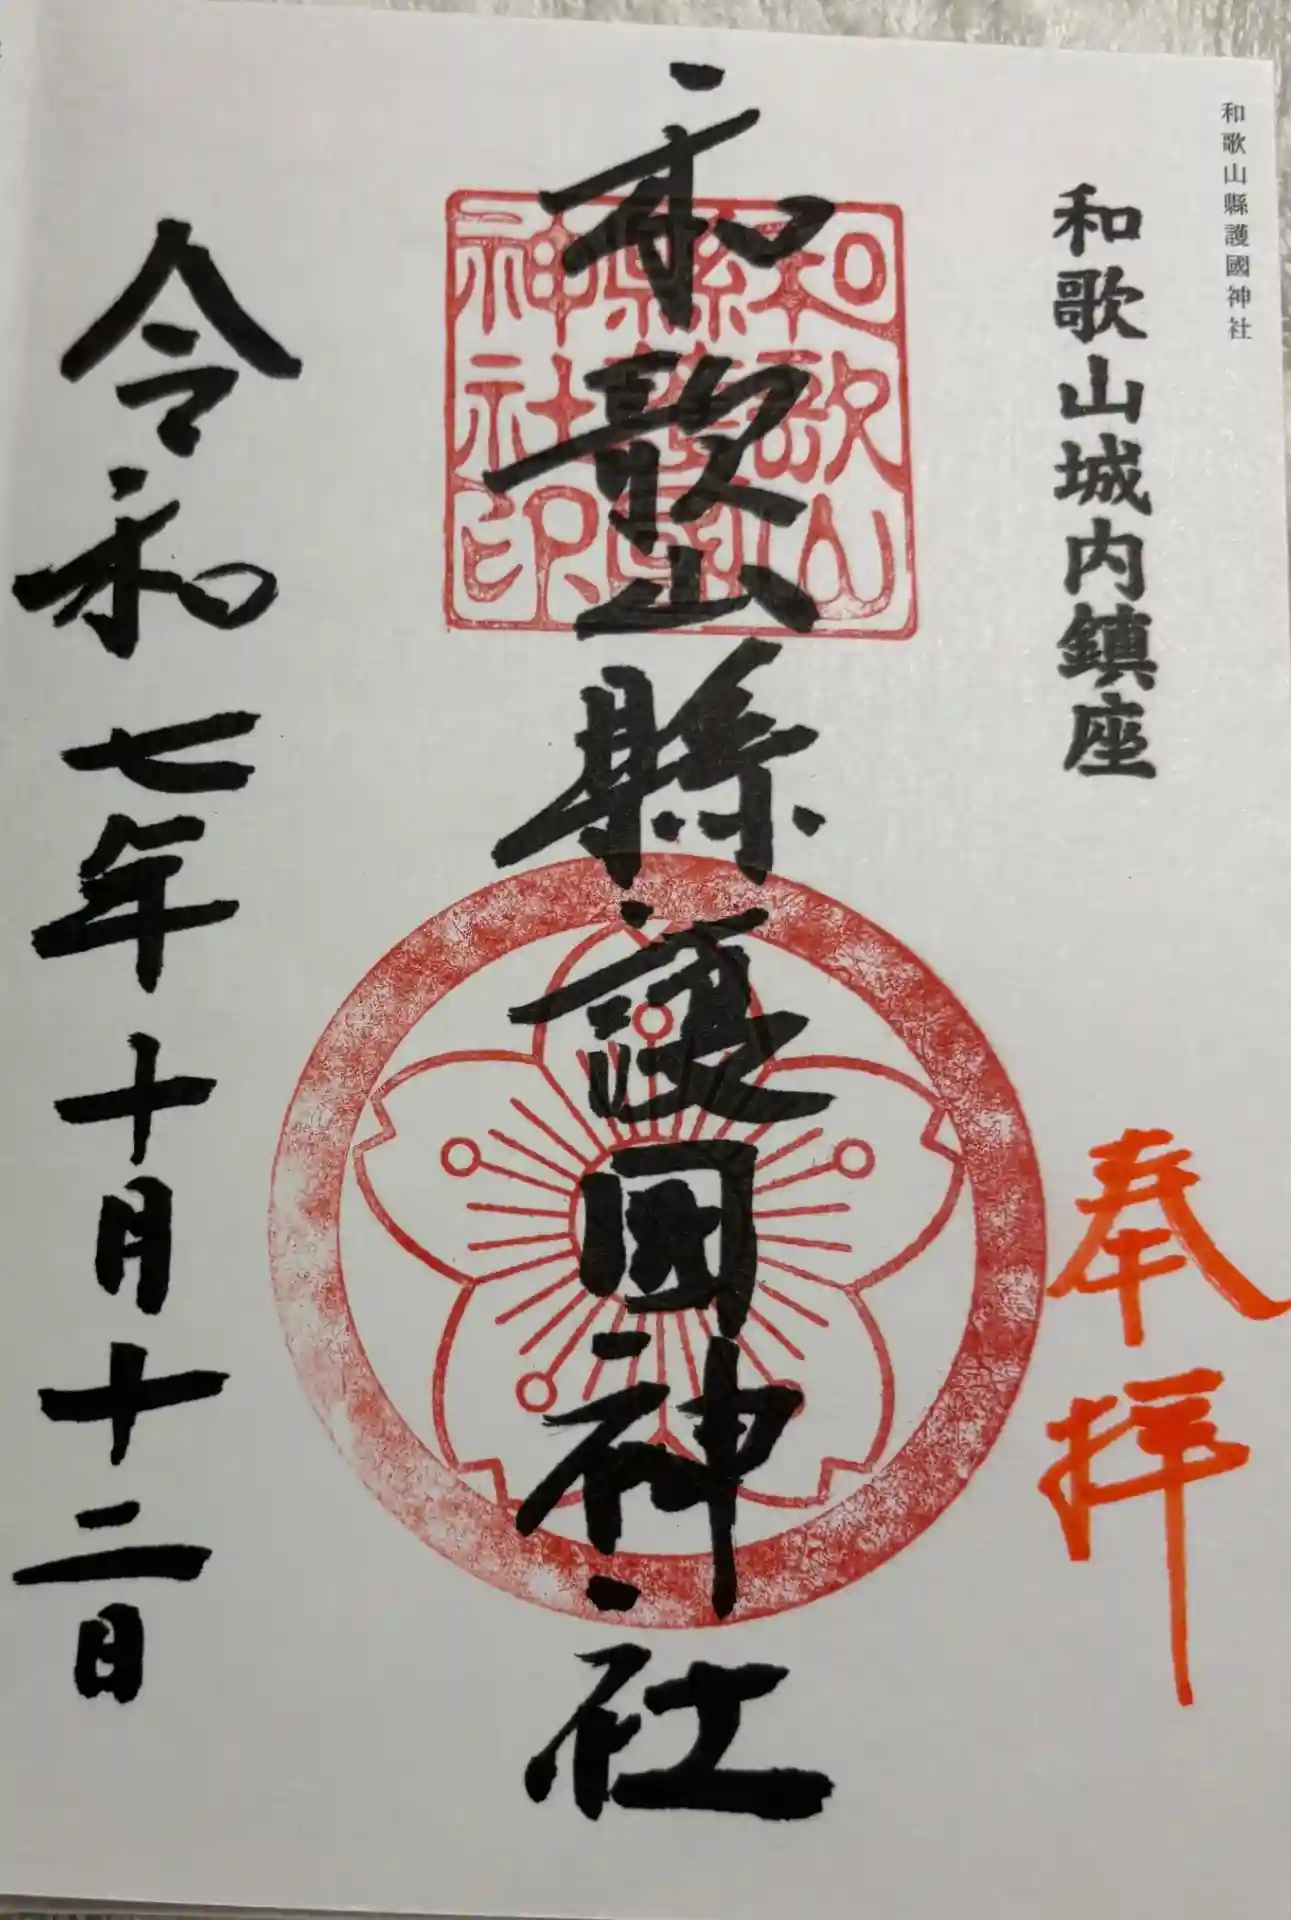 和歌山縣護國神社
和歌山城内鎮座
奉拝
和歌山縣護國神社
和歌山
縣護國
神社印
令和七年十月十二日